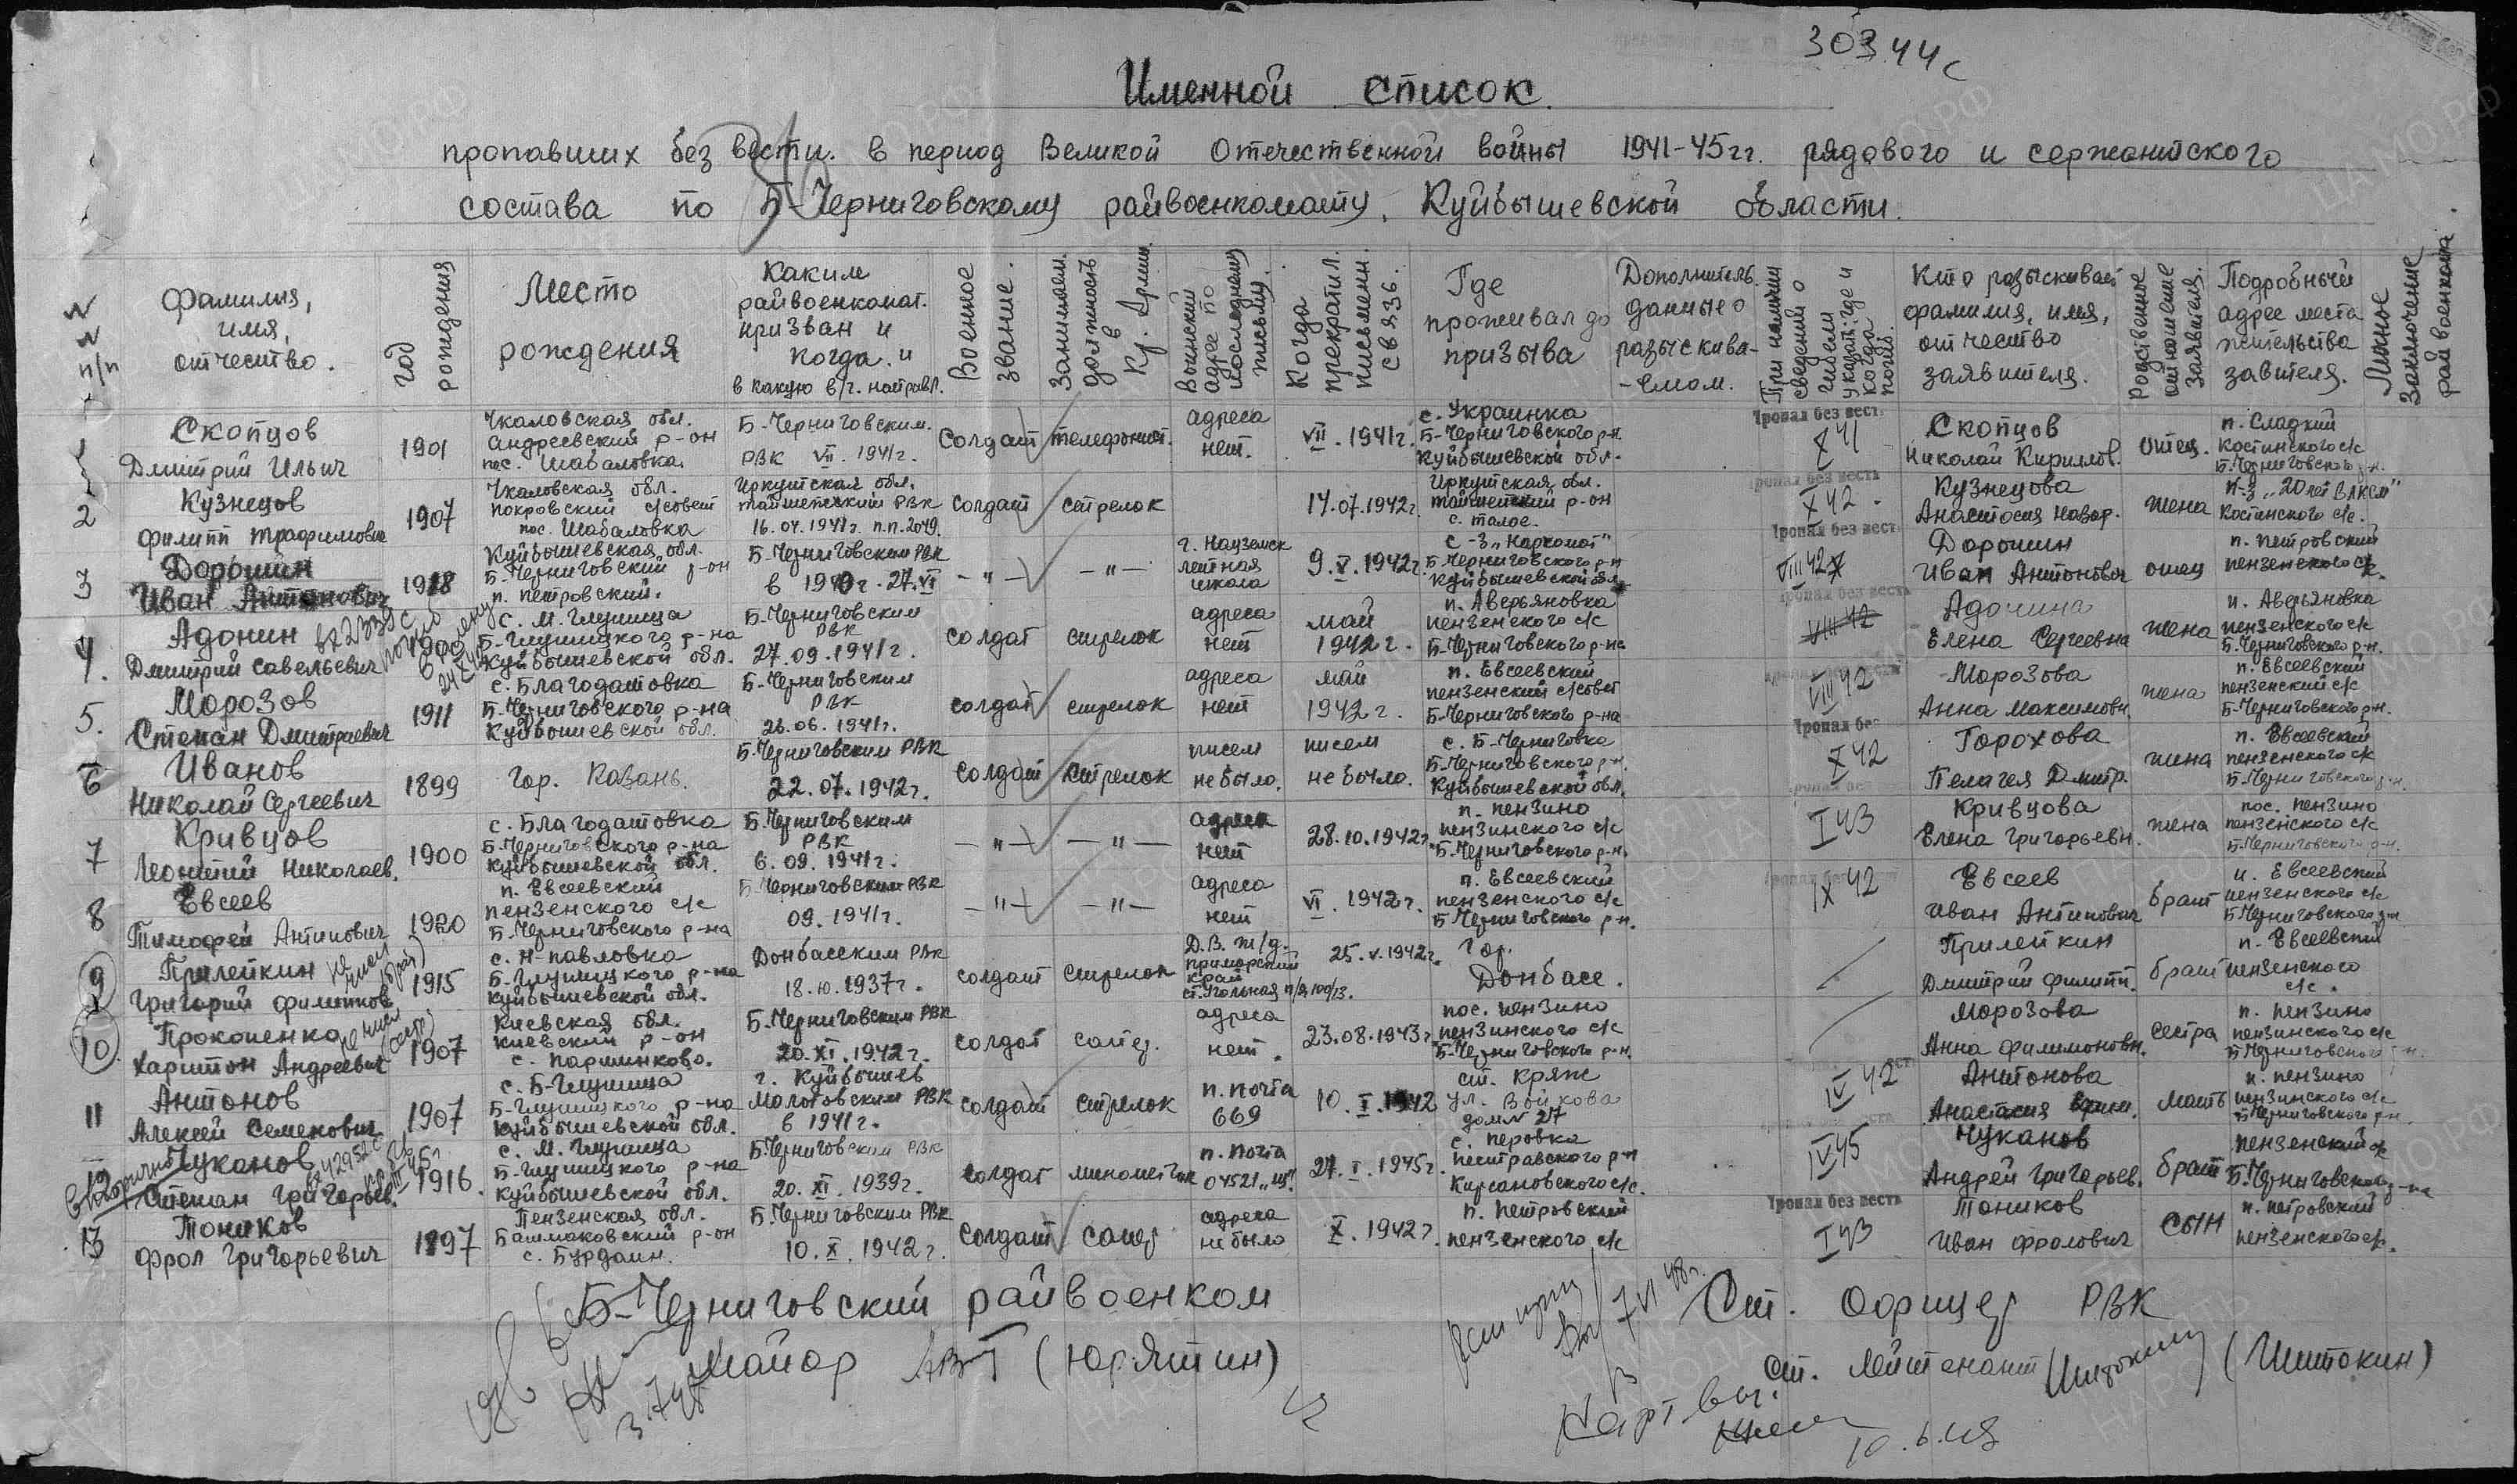 30344с
Именной список.
пропавших без вести в период Великой Отечественной войны 1941-45гг. рядового и сержантского
состава по Б-Черниговскому райвоенкомату, Куйбышевской области.
N N п/п
Фамилия, имя, отчество.
год рождения
Место рождения
Каким райвоенкомат. призван и когда. и в какую в/ч. направл.
Военное звание.
Занимаем. должность в Кр. Армии.
Воинский адрес по последнему письму.
Когда прекратил. письменн. связь.
Где проживал до призыва
Дополнитель. данные о разыскива-емом.
При наличии сведений о гибели указать: где и когда погиб.
Кто разыскивает фамилия, имя, отчество заявителя.
Родственное отношение заявителя.
Подробный адрес места жительства завителя.
Личное заключение райвоенкома.
1 Скопцов Дмитрий Ильич
1901
Чкаловская обл. Андреевский р-он пос. Шабаловка.
Б-Черниговским. РВК VII. 1941г.
солдат телефонист.
адреса нет.
VII. 1941г.
с. Украинка Б-Черниговского р-н. Куйбышевской обл.
Пропал без вест
X 41
Скопцов Николай Кириллов.
отец.
п. Сладкий Костинского с/с Б-Черниговского р-н.
2 Кузнецов Филипп Трафимович
1907
Чкаловская обл. Покровский с/совет пос. Шабаловка
Иркутская обл. Тайшетский РВК 16.04.1941г. п.п.2049.
солдат стрелок
14.07.1942г.
Иркутская обл. Тайшетский р-он с. Талое.
Пропал без весть
X 42.
Кузнецова Анастасия Назар.
жена
к-з "20 лет ВЛКСМ" Костинского с/с.
3 Дорошин Иван Антонович
1918
Куйбышевская обл. Б-Черниговский р-он п. Петровский.
Б-Черниговским РВК в 1940г. 27.VI
-"- -"-
летная школа
9.V.1942г.
с-з "Наркомат" Б-Черниговского р-н Куйбышевской обл.
Пропал без вест
VIII 42
Дорошин Иван Антонович
отец
п. Петровский пензенского с/с.
4. Адонин Дмитрий Савельевич
1900
с. М. Глушица Б-Глушицкого р-на Куйбышевской обл.
Б-Черниговским РВК 27.09.1941г.
солдат стрелок
адреса нет
май 1942г.
п. Аверьяновка пензенского с/с Б-Черниговского р-на
Пропал без вест
VIII 42
Адонина Елена Сергеевна
жена
п. Аверьяновка пензенского с/с Б-Черниговского р-н.
5. Морозов Степан Дмитриевич
1911
с. Благодатовка Б-Черниговского р-на Куйбышевской обл.
Б-Черниговским РВК 26.06.1941г.
солдат стрелок
адреса нет
май 1942г.
п. Евсеевский пензенский с/совет Б-Черниговского р-на
VIII 42
Морозова Анна Максимовн.
жена
п. Евсеевский пензенский с/с Б-Черниговского р-н.
6 Иванов Николай Сергеевич
1899
Гор. Казань.
Б-Черниговским РВК 22.07.1942г.
солдат стрелок
писем не было.
писем не было.
с. Б-Черниговка Б-Черниговского р-н. Куйбышевской обл.
Пропал без
X 42
Горохова Пелагея Дмитр.
жена
п. Евсеевский пензенского с/с Б-Черниговского р-н.
7 Кривцов Леонтий Николаев.
1900
с. Благодатовка Б-Черниговского р-на Куйбышевской обл.
Б-Черниговским РВК 6.09.1941г.
-"- -"-
адреса нет
28.10.1942г.
п. пензино пензинского с/с Б-Черниговского р-н.
I 43
Кривцова Елена Григорьевн.
жена
пос. пензино пензенского с/с Б-Черниговского р-н.
8 Евсеев Тимофей Антипович
1920
п. Евсеевский пензенского с/с Б-Черниговского р-на
Б-Черниговским РВК 09.1941г.
-"- -"-
адреса нет
VI. 1942г.
п. Евсеевский пензенского с/с Б-Черниговского р-н.
IX 42
Евсеев Иван Антипович
брат
п. Евсеевский пензенского с/с Б-Черниговского р-н
9 Прилепкин Григорий Филиппов
1915
с. Н-павловка Б-Глушицкого р-на Куйбышевской обл.
Донбасским РВК 18.10.1937г.
солдат стрелок
Д.В. ж/д. Приморский край ст. Угольная п/я 100/13.
25.V.1942г.
Гор. Донбасс.
Прилепкин Дмитрий Филипп.
брат
п. Евсеевский пензенского с/с.
10. Прокопенко Харитон Андреевич
1907
Киевская обл. Киевский р-он с. Паришково.
Б-Черниговским РВК 20.XI.1942г.
солдат сапер.
адреса нет.
23.08.1943г.
пос. пензино пензинского с/с Б-Черниговского р-н.
Морозова Анна Филимоновн.
сестра
п. пензино пензинского с/с Б-Черниговского р-н.
11 Антонов Алексей Семенович
1907
с. Б-Глушица Б-Глушицкого р-на Куйбышевской обл.
г. Куйбышев Молотовским РВК в 1941г.
солдат стрелок
п. почта 669
10.I.1942
ст. Кряж ул. Войкова дом N 27
IV 42
Антонова Анастасия
мать
п. пензино пензинского с/с Б-Черниговского р-н
вторично
12 Чуканов Степан Григорьев.
1916.
с. М. Глушица Б-Глушицкого р-на Куйбышевской обл.
Б-Черниговским РВК 20.XI.1939г.
солдат минометчик
п. почта 04521 "Щ"
27.I.1945г.
с. Перовка Пестравского р-н Кирсановского с/с.
IV 45
Чуканов Андрей Григорьев.
брат
пензенский с/с Б-Черниговского р-на
13 Тоников Фрол Григорьевич
1897
Пензенская обл. Башмаковский р-он с. Бурдаин.
Б-Черниговским РВК 10.X.1942г.
солдат сапер
адреса не было
X. 1942г.
п. Петровский пензенского с/с
Пропал без весть
I 43
Тоников Иван Фролович
сын
п. Петровский пензенского с/с.
Б-Черниговский райвоенком
Майор (Юрятин)
7 VI 48г.
Ст. Офицер РВК
ст. Лейтенант (Шитокин)
3.748
10.6.48